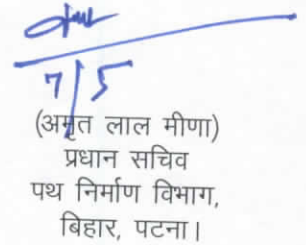 7/5
(अमृत लाल मीणा)
प्रधान सचिव
पथ निर्माण विभाग,
बिहार, पटना।